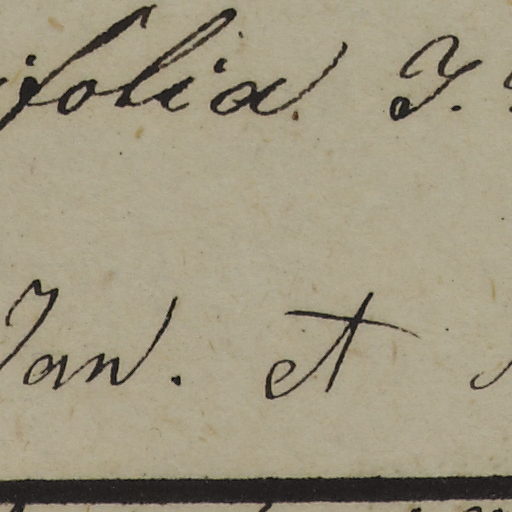 ifolia J.
Jan. et